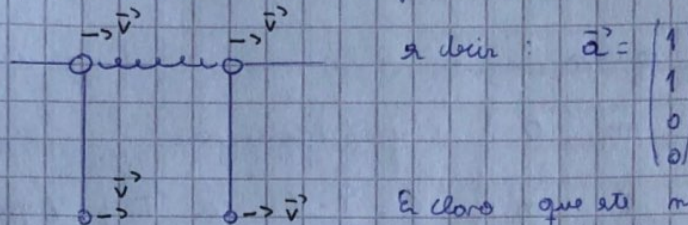 → v⃗ → v⃗
es decir : a⃗ = (1
1
0
0)
v⃗ → → v⃗
Es claro que este